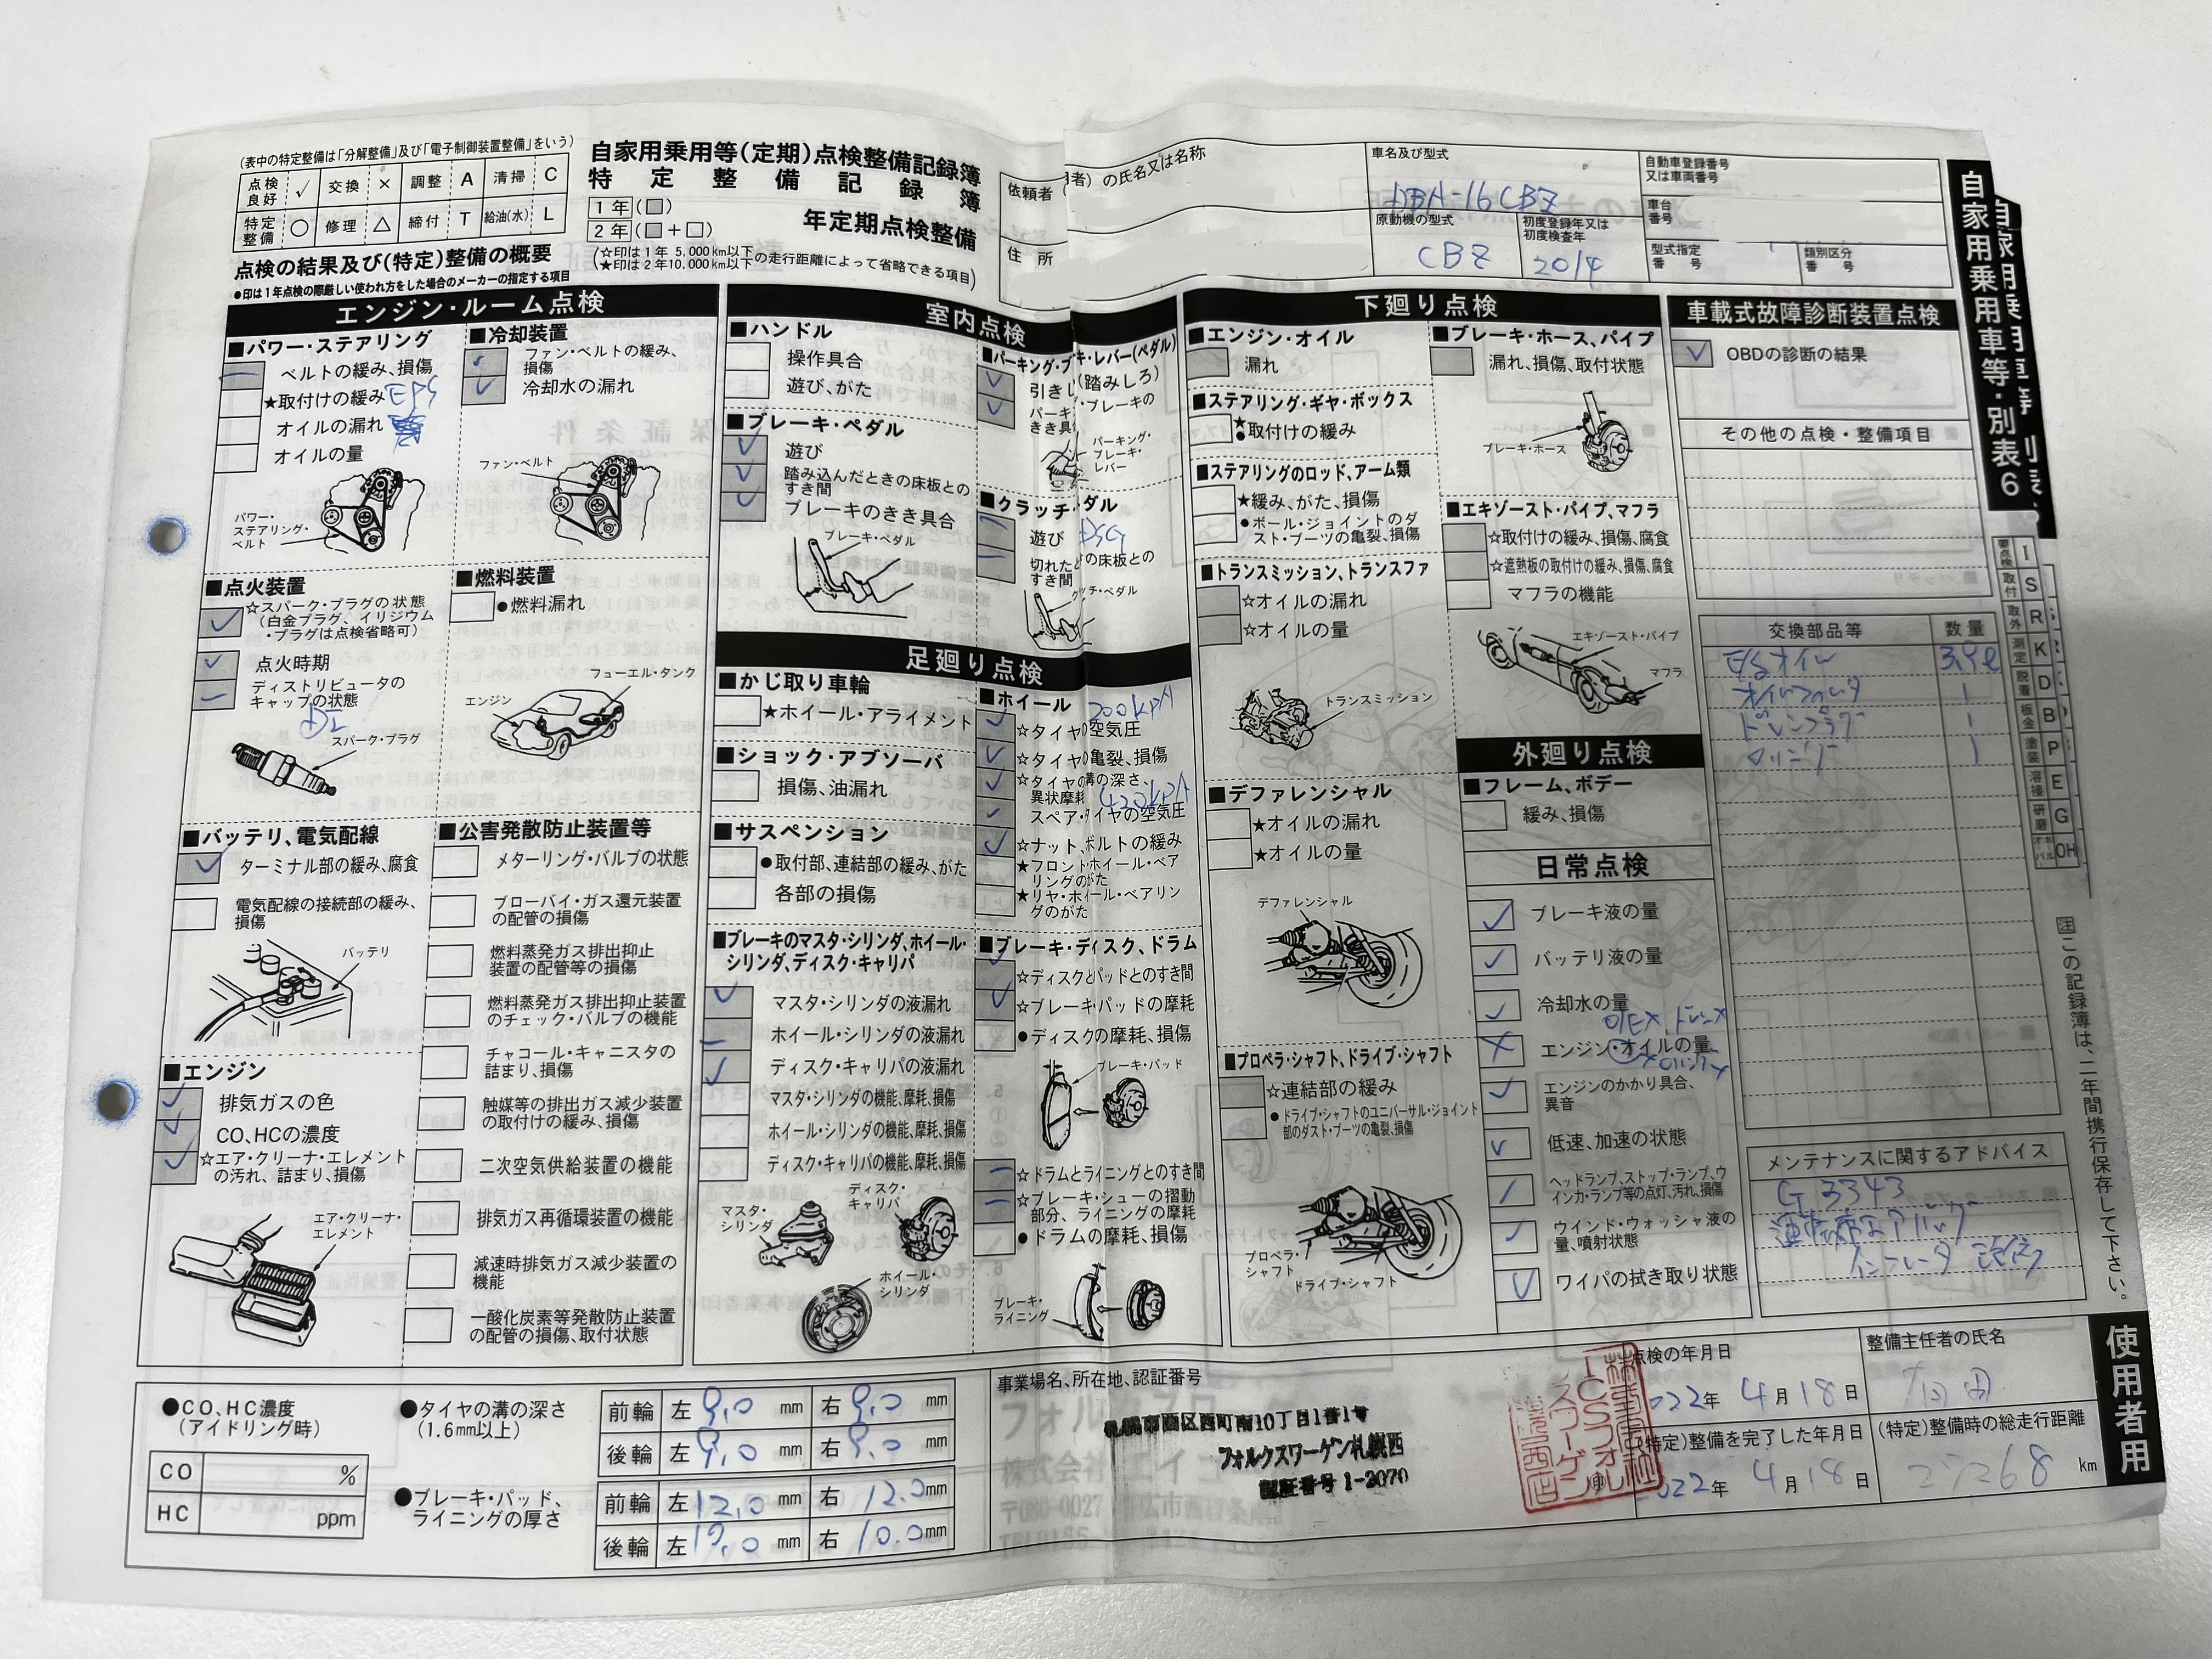 (表中の特定整備は「分解整備」及び「電子制御装置整備」をいう)
点検良好 ✓ 交換 × 調整 A 清掃 C
特定整備 ○ 修理 △ 締付 T 給油(水) L
点検の結果及び(特定)整備の概要
●印は1年点検の際厳しい使われ方をした場合のメーカーの指定する項目
自家用乗用等(定期)点検整備記録簿
特定整備記録簿
1年(□)
2年(□+□)
年定期点検整備
(☆印は1年 5,000km以下
★印は2年10,000km以下の走行距離によって省略できる項目)
依頼者
者)の氏名又は名称
住所
車名及び型式
DBA-16CBZ
原動機の型式
CBZ
初度登録年又は
初度検査年
2014
自動車登録番号
又は車両番号
車台
番号
型式指定
番号
類別区分
番号
自家用乗用車等・別表6
エンジン・ルーム点検
■パワー・ステアリング
ベルトの緩み、損傷
★取付けの緩み EPS
オイルの漏れ
オイルの量
パワー・
ステアリング・
ベルト
■冷却装置
ファン・ベルトの緩み、
損傷
冷却水の漏れ
ファン・ベルト
■点火装置
☆スパーク・プラグの状態
(白金プラグ、イリジウム
・プラグは点検省略可)
点火時期
ディストリビュータの
キャップの状態
DI
スパーク・プラグ
■燃料装置
●燃料漏れ
フューエル・タンク
エンジン
■バッテリ、電気配線
ターミナル部の緩み、腐食
電気配線の接続部の緩み、
損傷
バッテリ
■公害発散防止装置等
メターリング・バルブの状態
ブローバイ・ガス還元装置
の配管の損傷
燃料蒸発ガス排出抑止
装置の配管等の損傷
燃料蒸発ガス排出抑止装置
のチェック・バルブの機能
チャコール・キャニスタの
詰まり、損傷
触媒等の排出ガス減少装置
の取付けの緩み、損傷
二次空気供給装置の機能
排気ガス再循環装置の機能
減速時排気ガス減少装置の
機能
一酸化炭素等発散防止装置
の配管の損傷、取付状態
■エンジン
排気ガスの色
CO、HCの濃度
☆エア・クリーナ・エレメント
の汚れ、詰まり、損傷
エア・クリーナ・
エレメント
室内点検
■ハンドル
操作具合
遊び、がた
■ブレーキ・ペダル
遊び
踏み込んだときの床板との
すき間
ブレーキのきき具合
ブレーキ・ペダル
キ・レバー(ペダル)
(踏みしろ)
・ブレーキの
パーキング・
ブレーキ・
レバー
遊び DSG
すき間
足廻り点検
■かじ取り車輪
★ホイール・アライメント
■ショック・アブソーバ
損傷、油漏れ
■サスペンション
●取付部、連結部の緩み、がた
各部の損傷
■ブレーキのマスタ・シリンダ、ホイール・
シリンダ、ディスク・キャリパ
マスタ・シリンダの液漏れ
ホイール・シリンダの液漏れ
ディスク・キャリパの液漏れ
マスタ・シリンダの機能、摩耗、損傷
ホイール・シリンダの機能、摩耗、損傷
ディスク・キャリパの機能、摩耗、損傷
マスタ・
シリンダ
ディスク・
キャリパ
ホイール・
シリンダ
■ホイール 200kpA
☆タイヤの空気圧
☆タイヤの亀裂、損傷
☆タイヤの溝の深さ、
異状摩耗 420kpA
スペア・タイヤの空気圧
☆ナット、ボルトの緩み
★フロント・ホイール・ベア
リングのがた
★リヤ・ホイール・ベアリン
グのがた
■ブレーキ・ディスク、ドラム
☆ディスクとパッドとのすき間
☆ブレーキ・パッドの摩耗
●ディスクの摩耗、損傷
ブレーキ・パッド
☆ドラムとライニングとのすき間
☆ブレーキ・シューの摺動
部分、ライニングの摩耗
●ドラムの摩耗、損傷
ブレーキ・
ライニング
下廻り点検
■エンジン・オイル
漏れ
■ステアリング・ギヤ・ボックス
★●取付けの緩み
■ステアリングのロッド、アーム類
★緩み、がた、損傷
●ボール・ジョイントのダ
スト・ブーツの亀裂、損傷
■トランスミッション、トランスファ
☆オイルの漏れ
☆オイルの量
トランスミッション
■デファレンシャル
★オイルの漏れ
★オイルの量
デファレンシャル
■プロペラ・シャフト、ドライブ・シャフト
☆連結部の緩み
●ドライブ・シャフトのユニバーサル・ジョイント
部のダスト・ブーツの亀裂、損傷
プロペラ・
シャフト
ドライブ・シャフト
■ブレーキ・ホース、パイプ
漏れ、損傷、取付状態
ブレーキ・ホース
■エキゾースト・パイプ、マフラ
☆取付けの緩み、損傷、腐食
☆遮熱板の取付けの緩み、損傷、腐食
マフラの機能
エキゾースト・パイプ
マフラ
外廻り点検
■フレーム、ボデー
緩み、損傷
日常点検
ブレーキ液の量
バッテリ液の量
冷却水の量
エンジン・オイルの量
エンジンのかかり具合、
異音
低速、加速の状態
ヘッドランプ、ストップ・ランプ、ウ
インカ・ランプ等の点灯、汚れ、損傷
ウインド・ウォッシャ液の
量、噴射状態
ワイパの拭き取り状態
車載式故障診断装置点検
OBDの診断の結果
その他の点検・整備項目
交換部品等 数量
オイル
オイルフィルタ 1
ドレンプラグ 1
Oリング 1
メンテナンスに関するアドバイス
G 3343
運転席エアバッグ
インフレータ 改修
点検 I
取付 S
取外 R
測定 K
脱着 D
板金 B
塗装 P
溶接 E
研磨 G
OH
注この記録簿は、二年間携行保存して下さい。
使用者用
●CO、HC濃度
(アイドリング時)
CO %
HC ppm
●タイヤの溝の深さ
(1.6mm以上)
前輪 左 9.0 mm 右 9.0 mm
後輪 左 9.0 mm 右 9.0 mm
●ブレーキ・パッド、
ライニングの厚さ
前輪 左 12.0 mm 右 12.0 mm
後輪 左 10.0 mm 右 10.0 mm
事業場名、所在地、認証番号
札幌市西区西町南10丁目1番1号
フォルクスワーゲン札幌西
認証番号 1-2070
点検の年月日
2022年 4月 18日
(特定)整備を完了した年月日
2022年 4月 18日
整備主任者の氏名
(特定)整備時の総走行距離
27268 km